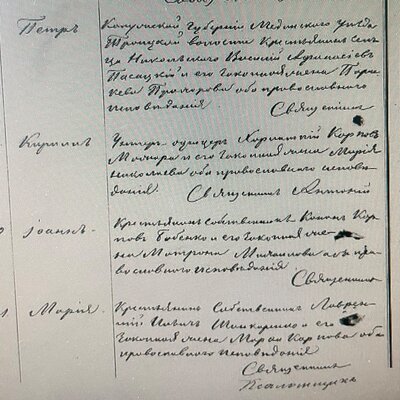 Петръ
Калужской Губерніи Медынского уѣзда
Троицкой волости Крестьянинъ сель
ца Никольского Василій Афанасіевъ
и его законная жена Парас
кева Прохорова оба православнаго
исповѣданія.
Священникъ
Кириллъ
Унтеръ офицеръ Харитоній Карповъ
и его законная жена Марія
Николаева оба православнаго исповѣ
данія.
Священникъ Антоній
Іоаннъ.
Крестьянинъ собственникъ Кар
повъ Бабенко и его законная же
на Матрона Михайлова оба пра
вославнаго исповѣданія
Священникъ
Марія.
Крестьянинъ Собственникъ Лаврен
тій и его
законная жена Карпова оба
православнаго исповѣданія
Священникъ
Псаломщикъ